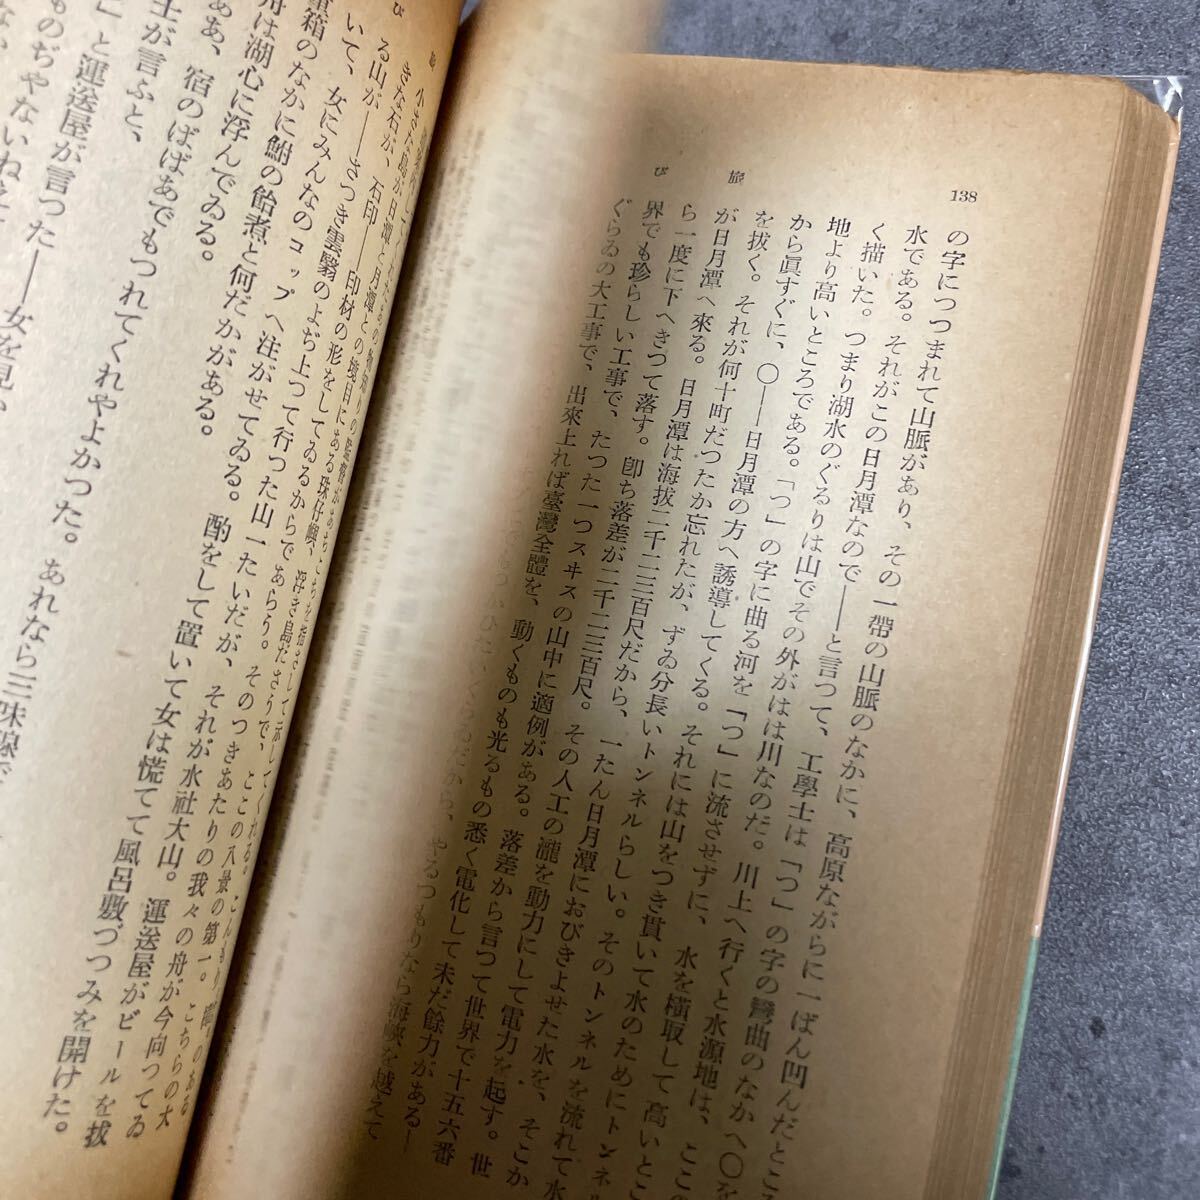 138
旅
び
の字につつまれて山脈があり、その一帶の山脈のなかに、高原ながらに一ばん凹んだところ
水である。それがこの日月潭なので――と言つて、工學士は「つ」の字の彎曲のなかへ〇を
く描いた。つまり湖水のぐるりは山でその外がはは川なのだ。川上へ行くと水源地は、ここの
地より高いところである。「つ」の字に曲る河を「つ」に流させずに、水を横取して高いとこ
から眞すぐに、〇――日月潭の方へ誘導してくる。それには山をつき貫いて水のためにトンネル
を拔く。それが何十町だつたか忘れたが、ずゐ分長いトンネルらしい。そのトンネルを流れて水
が日月潭へ來る。日月潭は海拔二千二三百尺だから、一たん日月潭におびきよせた水を、そこか
ら一度に下へきつて落す。卽ち落差が二千二三百尺。その人工の瀧を動力にして電力を起す。世
界でも珍らしい工事で、たつた一つスヰスの山中に適例がある。落差から言つて世界で十五六番
ぐらゐの大工事で、出來上れば臺灣全體を、動くものも光るもの悉く電化して未だ餘力がある――
だから、やるつもりなら海峽を越えて
び
旅
小さな島が日潭と月潭との境目にある珠仔嶼、浮き島ださうで、ここの八景の第一。
きな石が、石印――印材の形をしてゐるからであらう。そのつきあたりの我々の舟が今向つてゐ
る山が――さつき雲翳のよぢ上つて行つた山一たいだが、それが水社大山。運送屋がビールを拔
いて、女にみんなのコップへ注がせてゐる。酌をして置いて女は慌てて風呂敷づつみを開けた。
重箱のなかに鮒の飴煮と何だかがある。
舟は湖心に浮んでゐる。
ああ、宿のばばあでもつれてくれやよかつた。あれなら三味線で
士が言ふと、
」と運送屋が言つた――女を見
ものぢやないね